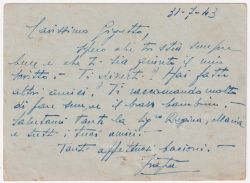 31-7-43
Carissimo
spero che tu stia sempre
bene e che ti sia giunto il mio
scritto - Ti diverti? Hai fatto
altri amici? Ti raccomando molto
di fare sempre il bravo bambino.
Salutami tanto la Regina, Maria
e tutti i tuoi amici.
Tanti affettuosi bacioni.